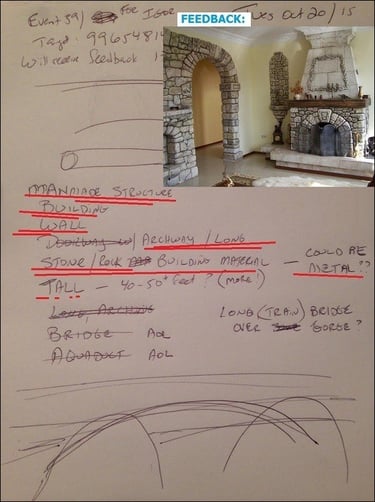 FEEDBACK:
Event 59/ FOR IGOR Tues Oct 20/15
Tagt: 99654814
Will receive feedback
MANMADE STRUCTURE
BUILDING
WALL
DOORWAY / ARCHWAY / LONG
STONE/ROCK BUILDING MATERIAL — COULD BE METAL??
TALL — 40-50+ feet? (MORE!)
LONG, ARCHING
LONG (TRAIN) BRIDGE
OVER GORGE?
BRIDGE AOL
AQUADUCT AOL